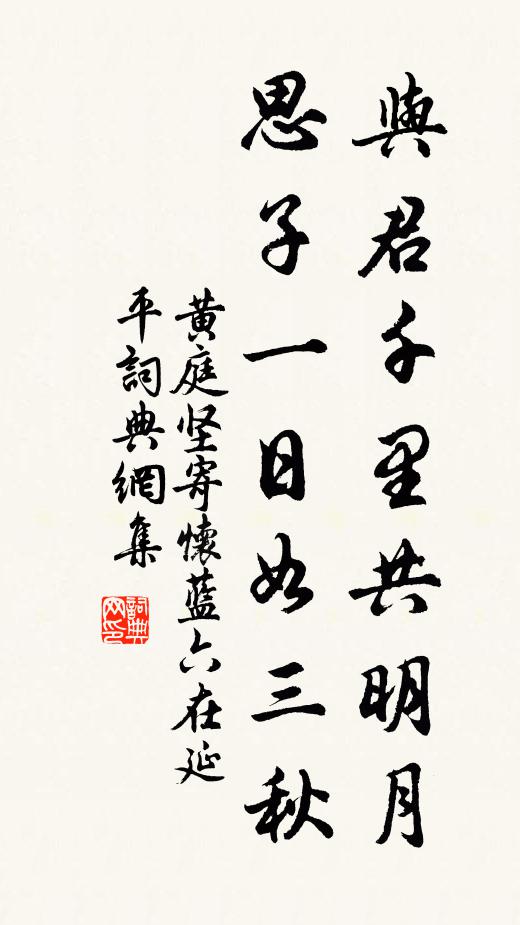 與君千里共明月
思子一日如三秋
黄庭坚寄懷藍六在延
平詞典網集
詞典
网印